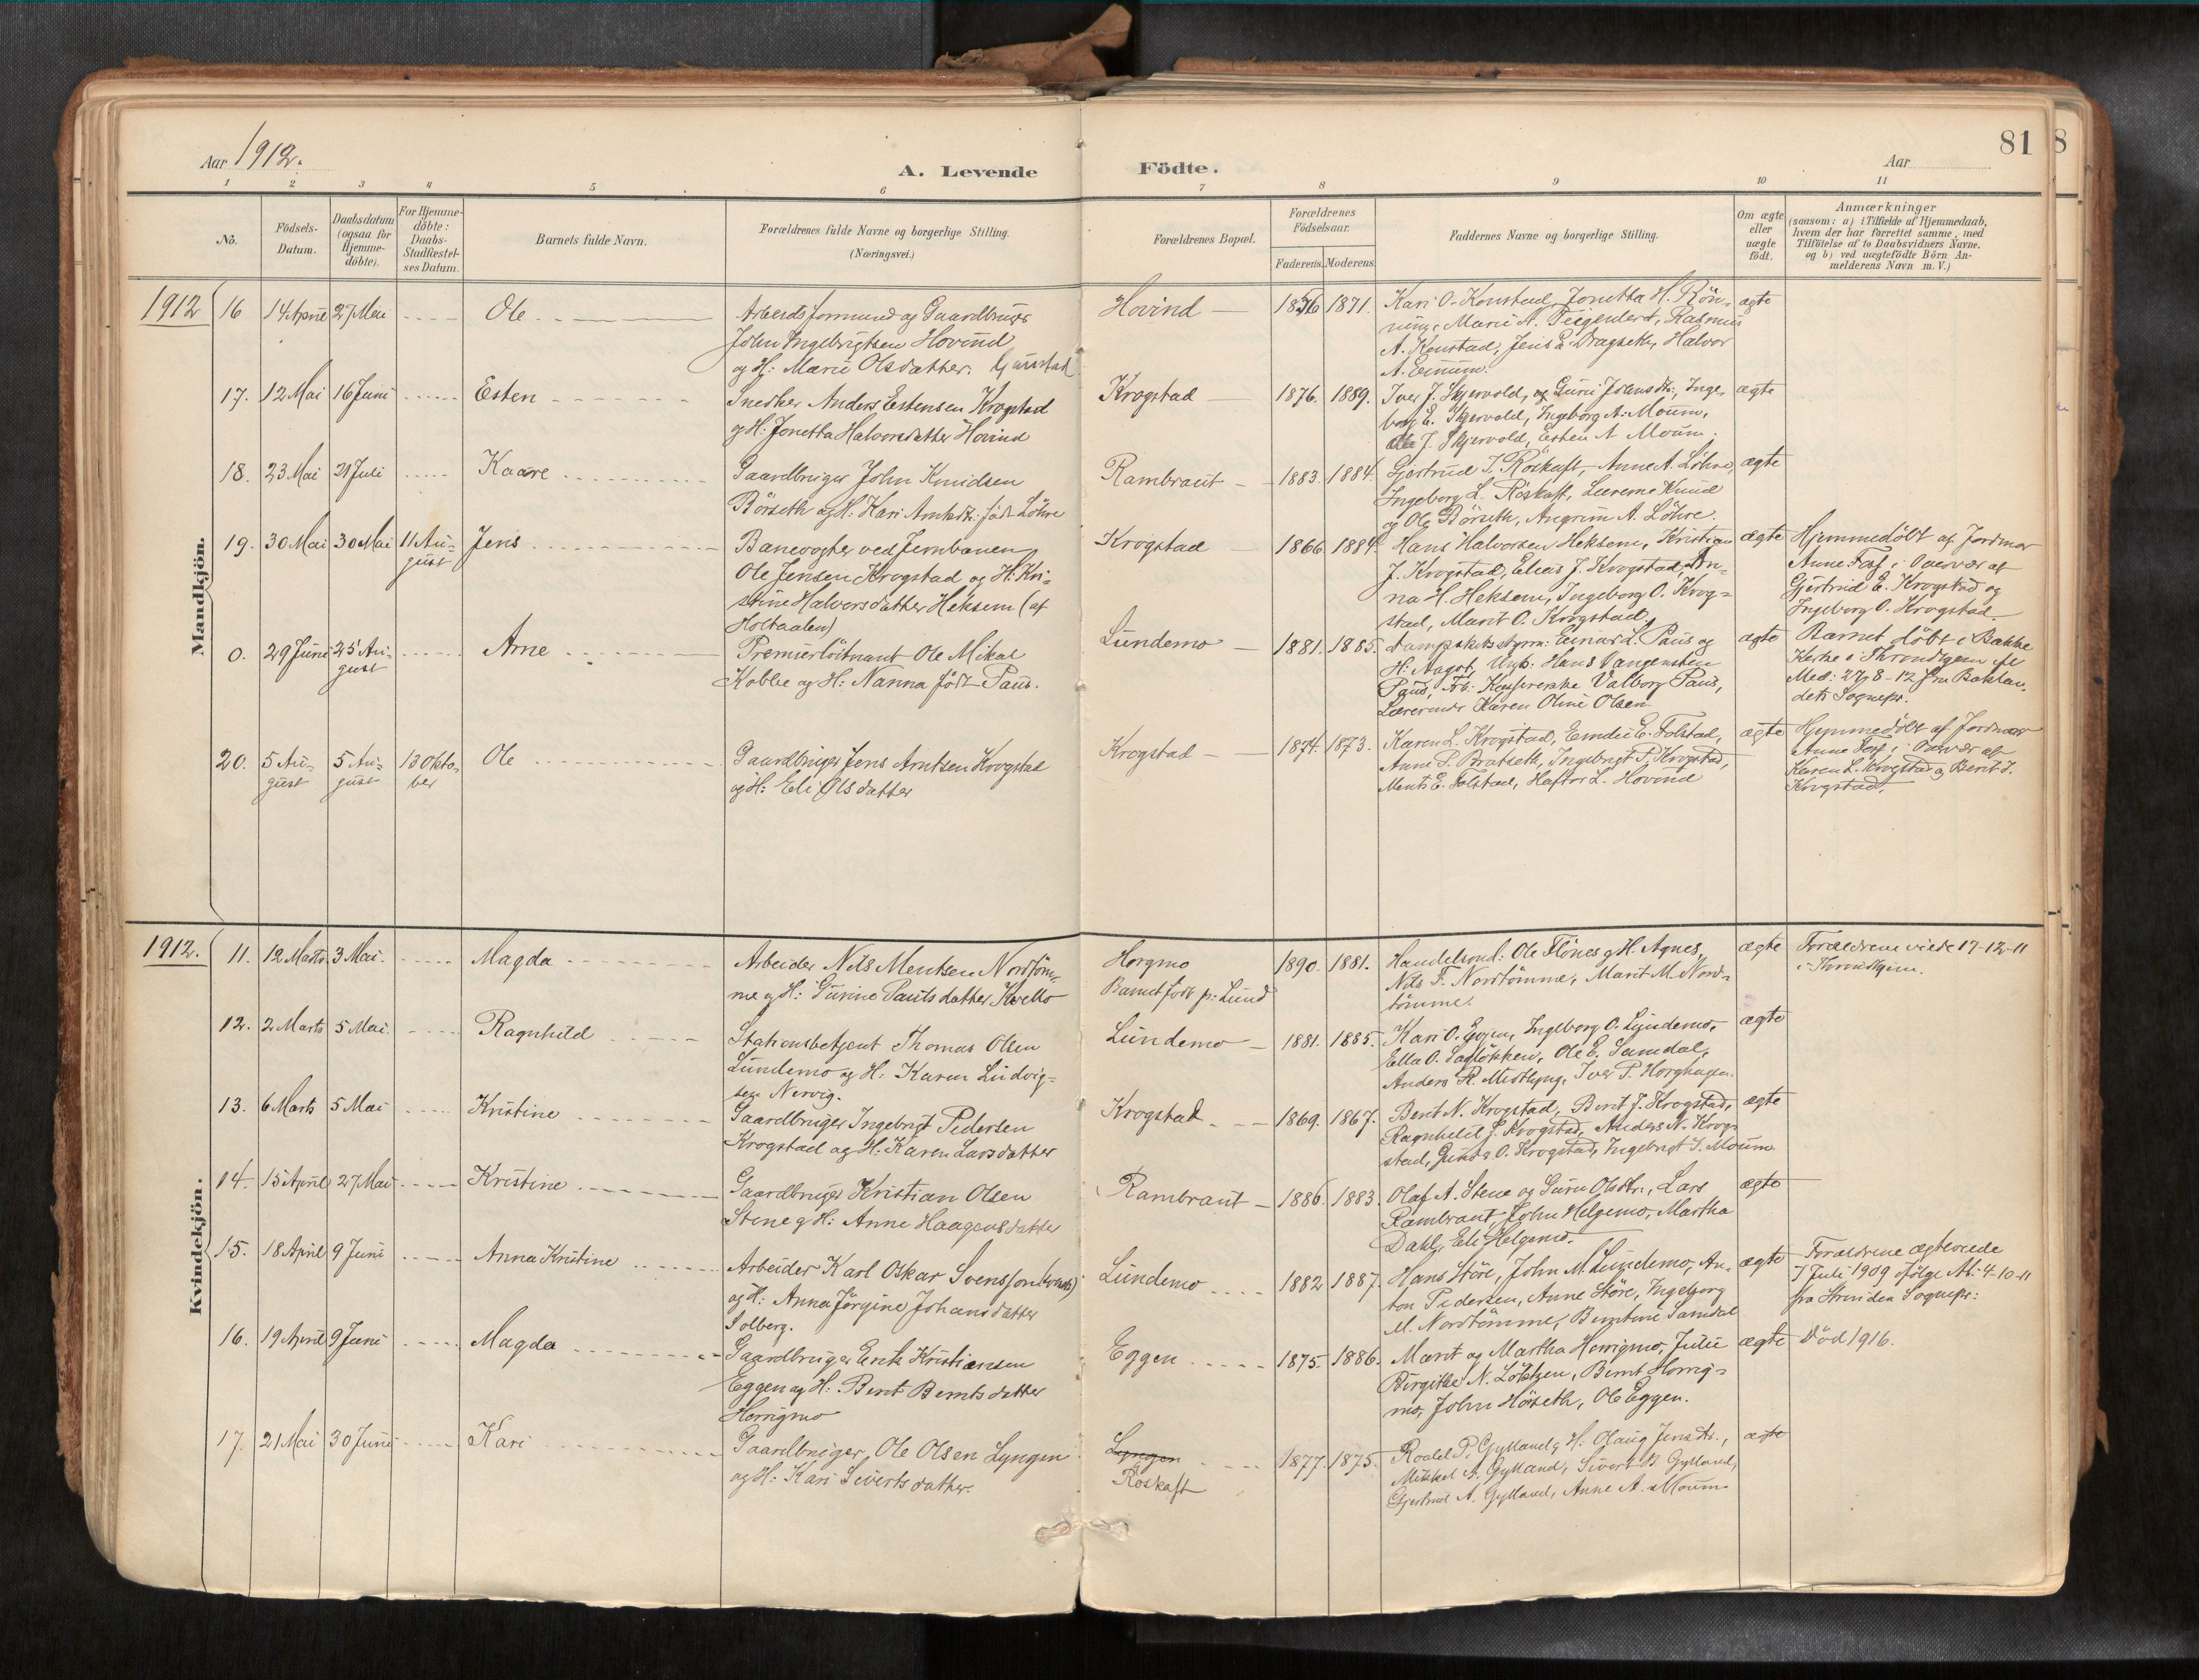 81
8
Aar 1912.
A. Levende
Födte.
Aar
1 2 3 4 5 6 7 8 9 10 11
No.
Födsels-
Datum.
Daabsdatum
(ogsaa for
Hjemme-
döbte).
For Hjemme-
döbte:
Daabs-
Stadfæstel-
ses Datum.
Barnets fulde Navn.
Forældrenes fulde Navne og borgerlige Stilling.
(Næringsvei.)
Forældrenes Bopæl.
Forældrenes
Födselsaar.
Faderens.
Moderens.
Faddernes Navne og borgerlige Stilling.
Om ægte
eller
uægte
födt.
Anmærkninger
(saasom: a) i Tilfælde af Hjemmedaab,
hvem der har forrettet samme, med
Tilföielse af to Daabsvidners Navne.
og b) ved uægtefödte Börn An-
melderens Navn m. V.)
Mandkjön.
1912
16 14 April 27 Mai
Ole
Arbeidsformand og Gaardbruger
John Ingebrigtsen Hovind
og H: Marie Olsdatter.
Hovind
1871.
Kari O. Konstad, Jonetta H. Rön-
ning, Marie A. Rasmus
A. Konstad, Jens E. Dragseth, Halvor
ægte
17. 12 Mai 16 Juni
Esten
Snedker Anders Estensen Krogstad
og H: Jonetta Halvorsdatter Hovind
Krogstad
1876. 1889.
Iver J. Skjervold, og Guri Johnsdtr:, Inge-
borg E. Skjervold, Ingeborg A. Moum,
Ole J. Skjervold, Esten A. Moum.
ægte
18. 23 Mai 21 Juli
Kaare
Gaardbruger John Knudsen
Börseth og H: Kari Arntsdtr: födt Löhre
Rambraut
1883. 1884.
Gjertrud I. Röskaft, Anne A. Löhre,
Ingeborg L. Röskaft, Lærerne Knud
og Ole Börseth, Angrim A. Löhre.
ægte
19. 30 Mai 30 Mai 11 Au-
gust
Jens
Banevogter ved Jernbanen
Ole Jensen Krogstad og H: Kri-
stine Halvorsdatter Heksem (af
Holtaalen)
Krogstad
1866 1884
Hans Halvorsen Heksem, Kristian
J. Krogstad, Elias J. Krogstad, An-
na H. Heksem, Ingeborg O. Krog-
stad, Marit O. Krogstad.
ægte
Hjemmedöbt af Jordmor
Anne Fosf i Overvær af
Gjertrud E. Krogstad og
Ingeborg O. Krogstad
0. 29 Juni 25 Au-
gust
Arne
Premierlöitnant Ole Mikal
Kobbe og H: Nanna födt Paus.
Lundemo
1881. 1885.
Dampskibsstyrm: Einar L. Paus og
H: Magot, Ungk: Hans Vangensten
Paus, Frk: Kassererske Valborg Paus,
Lærerinde Karen Oline Olsen
ægte
Barnet döbt i Bakke
Kirke i Throndhjem if
Med: 27/8-12 fra Baklan-
dets Sognepr.
20. 5 Au-
gust
5 Au-
gust
13 Okto-
ber
Ole
Gaardbruger Jens Arntsen Krogstad
og H: Eli Olsdatter
Krogstad
1874. 1873.
Karen L. Krogstad, Emelie E. Folstad,
Anne P. Bratseth, Ingebrigt P. Krogstad,
Ments E. Folstad, Haftor L. Hovind
ægte
Hjemmedöbt af Jordmor
Anne Fosf i Overvær af
Karen L. Krogstad og Berit J.
Krogstad.
Kvindekjön.
1912.
11. 12 Marts. 3 Mai.
Magda
Arbeider Nils Mentsen Nordtöm-
me og H: Gurine Paulsdatter Kvello
Horgmo
Barnet födt p: Lund
1890. 1881.
Handelsmd: Ole Flönes og H. Agnes,
Nils F. Nordtömme, Marit M. Nord-
tömme.
ægte
Forældrene viede 17-12-11
i Throndhjem.
12. 2 Marts 5 Mai.
Ragnhild
Stationsbetjent Thomas Olsen
Lundemo og H: Karen Ludvig-
sen Nervig.
Lundemo
1881. 1885.
Kari O. Eggen, Ingeborg O. Lundemo,
Ella O. Ole E. Samdal,
Anders R. Midtlyng, Iver P. Horghagen.
ægte
13. 6 Marts 5 Mai
Kristine
Gaardbruger Ingebrigt Pedersen
Krogstad og H: Karen Larsdatter
Krogstad
1869. 1867.
Berit N. Krogstad, Berit J. Krogstad,
Ragnhild J. Krogstad, Anders N. Krog-
stad, O. Krogstad, Ingebrigt S. Moum
ægte
14. 15 April 27 Mai
Kristine
Gaardbruger Kristian Olsen
Stene og H: Anne Haagensdatter
Rambraut
1886. 1883.
Olaf A. Stene og Guru Olsdtr:, Lars
Rambraut, John Helgemo, Martha
Dahl, Eli Helgemo.
ægte
15. 18 April 9 Juni
Anna Kristine
Arbeider Karl Oskar Svensson
og H: Anna Jörgine Johansdatter
Solberg.
Lundemo
1882 1887.
Hans Störe, John M. Lundemo, An-
ton Pedersen, Anne Störe, Ingeborg
M. Nordtömme, Berntine Samdal
ægte
Forældrene ægteviede
7 Juli 1909 ifölge At: 4-10-11
fra Strinden Sognepr:
16. 19 April 9 Juni
Magda
Gaardbruger Erik Kristiansen
Eggen og H: Berit Berntsdatter
Horrigmo
Eggen
1875. 1886.
Marit og Martha Horrigmo, Julie
Birgitte N. Bernt Horrig-
mo, John Hörseth, Ole Eggen.
ægte
Död 1916.
17. 21 Mai 30 Juni
Kari
Gaardbruger Ole Olsen Lyngen
og H: Kari Sivertsdatter.
Lyngen
Röskaft
1877. 1875.
Roald P. Gylland, H: Olaug Jensdtr.,
Mikkel A. Gylland, Sivert B. Gylland,
Gjertrud A. Gylland, Anne A. Moum
ægte